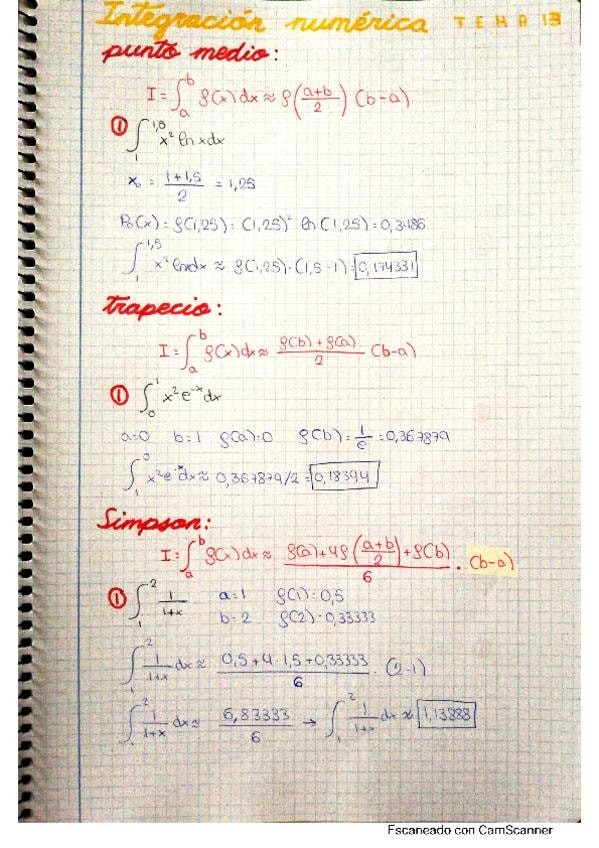 Integración numérica TEMA 13
punto medio:
I = ∫_a^b f(x) dx ≈ f((a+b)/2) (b-a)
① ∫_1^1,5 x² ln x dx
x₀ = (1+1,5)/2 = 1,25
P₀(x) = f(1,25) = (1,25)² ln (1,25) = 0,3486
∫_1^1,5 x² ln x dx ≈ f(1,25)·(1,5-1) = 0,174331
trapecio:
I = ∫_a^b f(x) dx ≈ (f(b) + f(a))/2 (b-a)
① ∫_0^1 x² e^-x dx
a=0 b=1 f(a)=0 f(b) = 1/e = 0,367879
∫_1^0 x² e^-x dx ≈ 0,367879/2 = 0,18394
Simpson:
I = ∫_a^b f(x) dx ≈ (f(a)+4f((a+b)/2)+f(b))/6 · (b-a)
① ∫_1^2 1/(1+x) a=1 f(1)=0,5
b=2 f(2)=0,33333
∫_1^2 1/(1+x) dx ≈ (0,5+4·1,5+0,33333)/6 · (2-1)
∫_1^2 1/(1+x) dx ≈ 6,83333/6 → ∫_1^2 1/(1+x) dx ≈ 1,13888
Escaneado con CamScanner